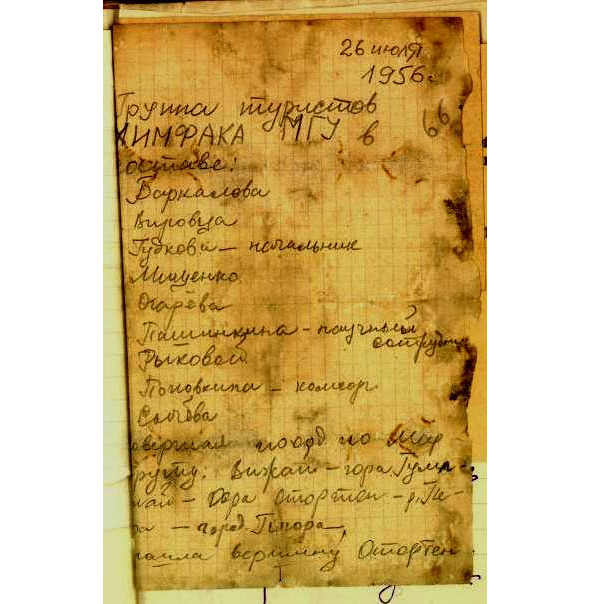 26 июля
1956г.
Группа туристов
ХИМФАКА МГУ в 66
составе:
Баркалова
Вировца
Губкова – начальник
Мищенко
Огарёва
Пашинкина – научный
сотрудник
Рыковой
Поповкина – комсорг
Сычёва
совершила поход по мар-
руту: Вижай – гора
– Гора Отортен – р. Пе-
ра – город Печора,
вершину Отортен